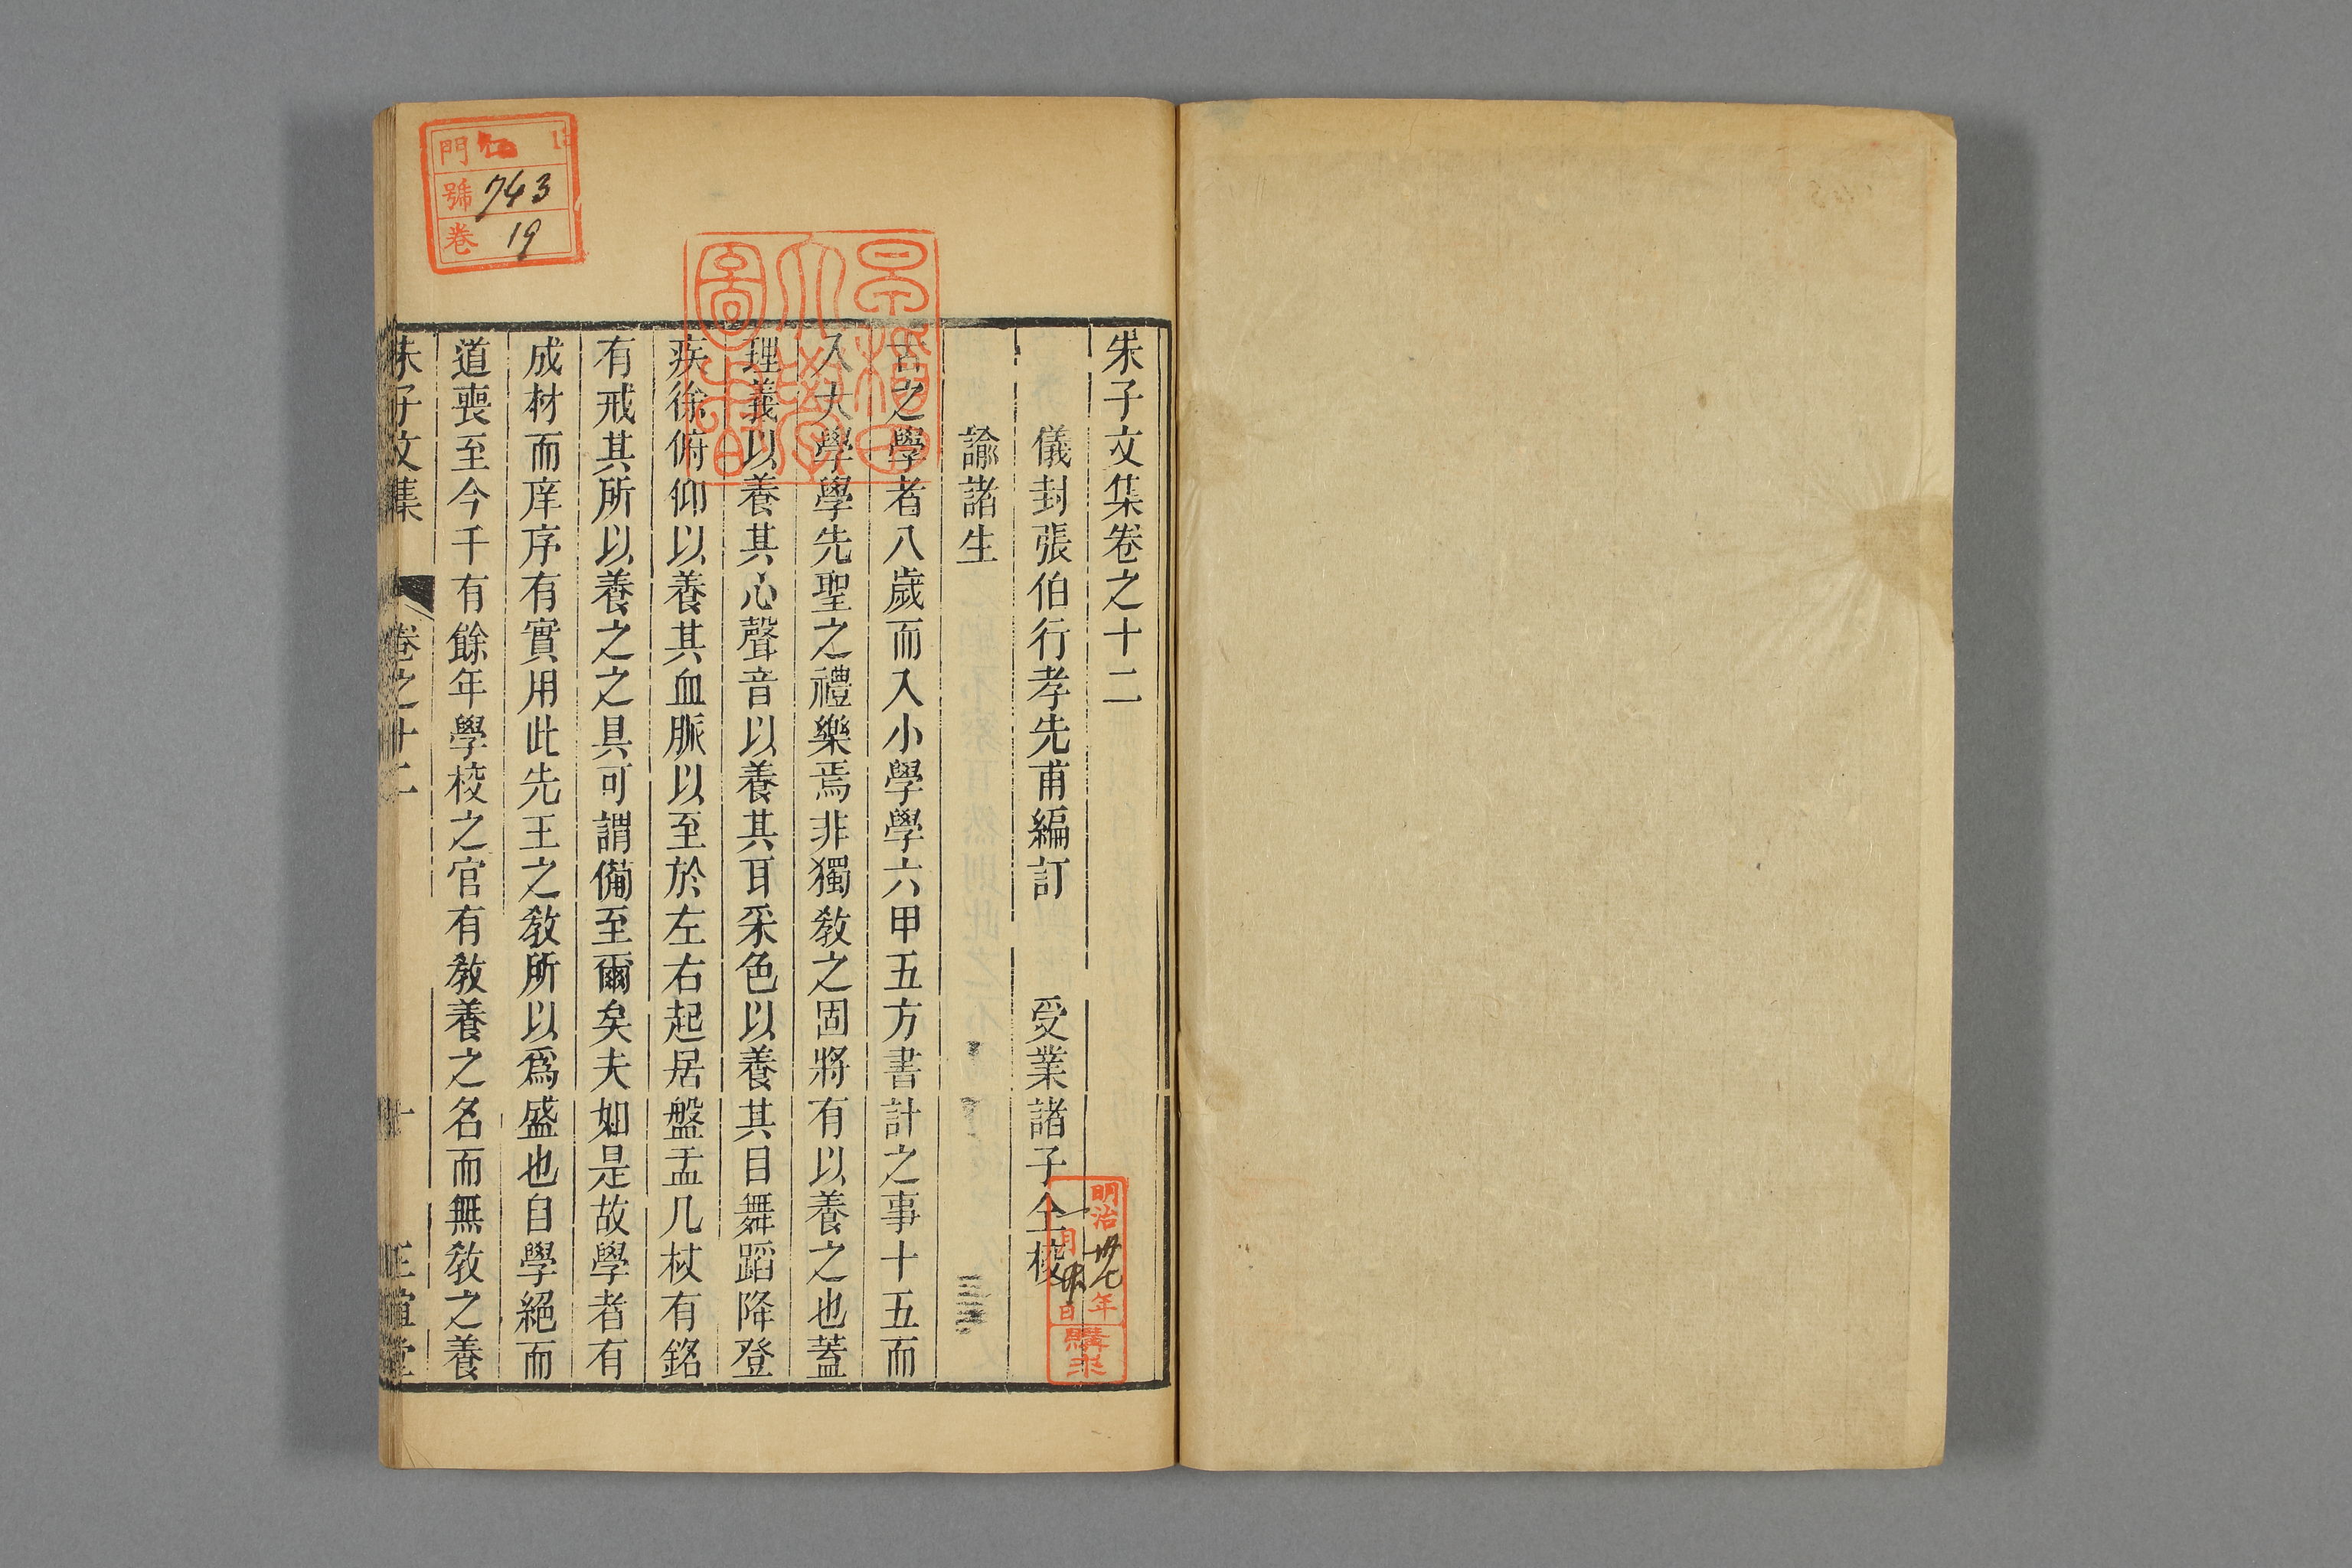 朱子文集卷之十二
儀封張伯行孝先甫編訂　受業諸子仝校
諭諸生
古之學者八歲而入小學學六甲五方書計之事十五而
入大學學先聖之禮樂焉非獨敎之固將有以養之也蓋
理義以養其心聲音以養其耳采色以養其目舞蹈降登
疾徐俯仰以養其血脈以至於左右起居盤盂几杖有銘
有戒其所以養之之具可謂備至爾矣夫如是故學者有
成材而庠序有實用此先王之敎所以爲盛也自學絕而
道喪至今千有餘年學校之官有敎養之名而無敎之養
朱子文集　卷之十二　正誼堂
早稻田大學圖書
門
號 743
卷 19
明治卅七年
月 日
購求